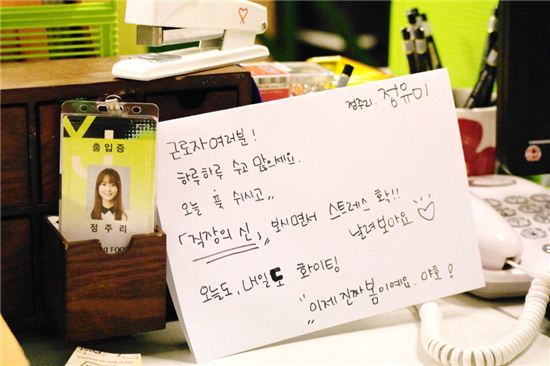 출입증
정주리
정주리. 정유미
근로자 여러분!
하루하루 수고 많으세요.
오늘 푹 쉬시고,,
「직장의 신」 보시면서 스트레스 확!!
날려보아요
오늘도, 내일도 화이팅!
"이제 진짜 봄이에요. 야호!